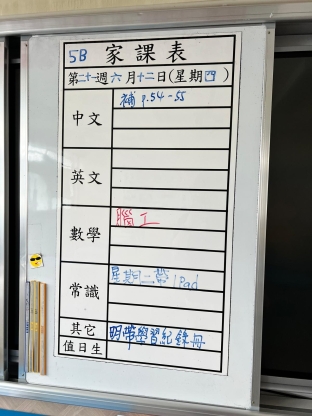 5B 家課表
第二十一週六月十二日(星期四)
中文 補 p.54-55
英文
數學 腦工
常識 星期二帶iPad
其它 明帶學習紀錄冊
值日生